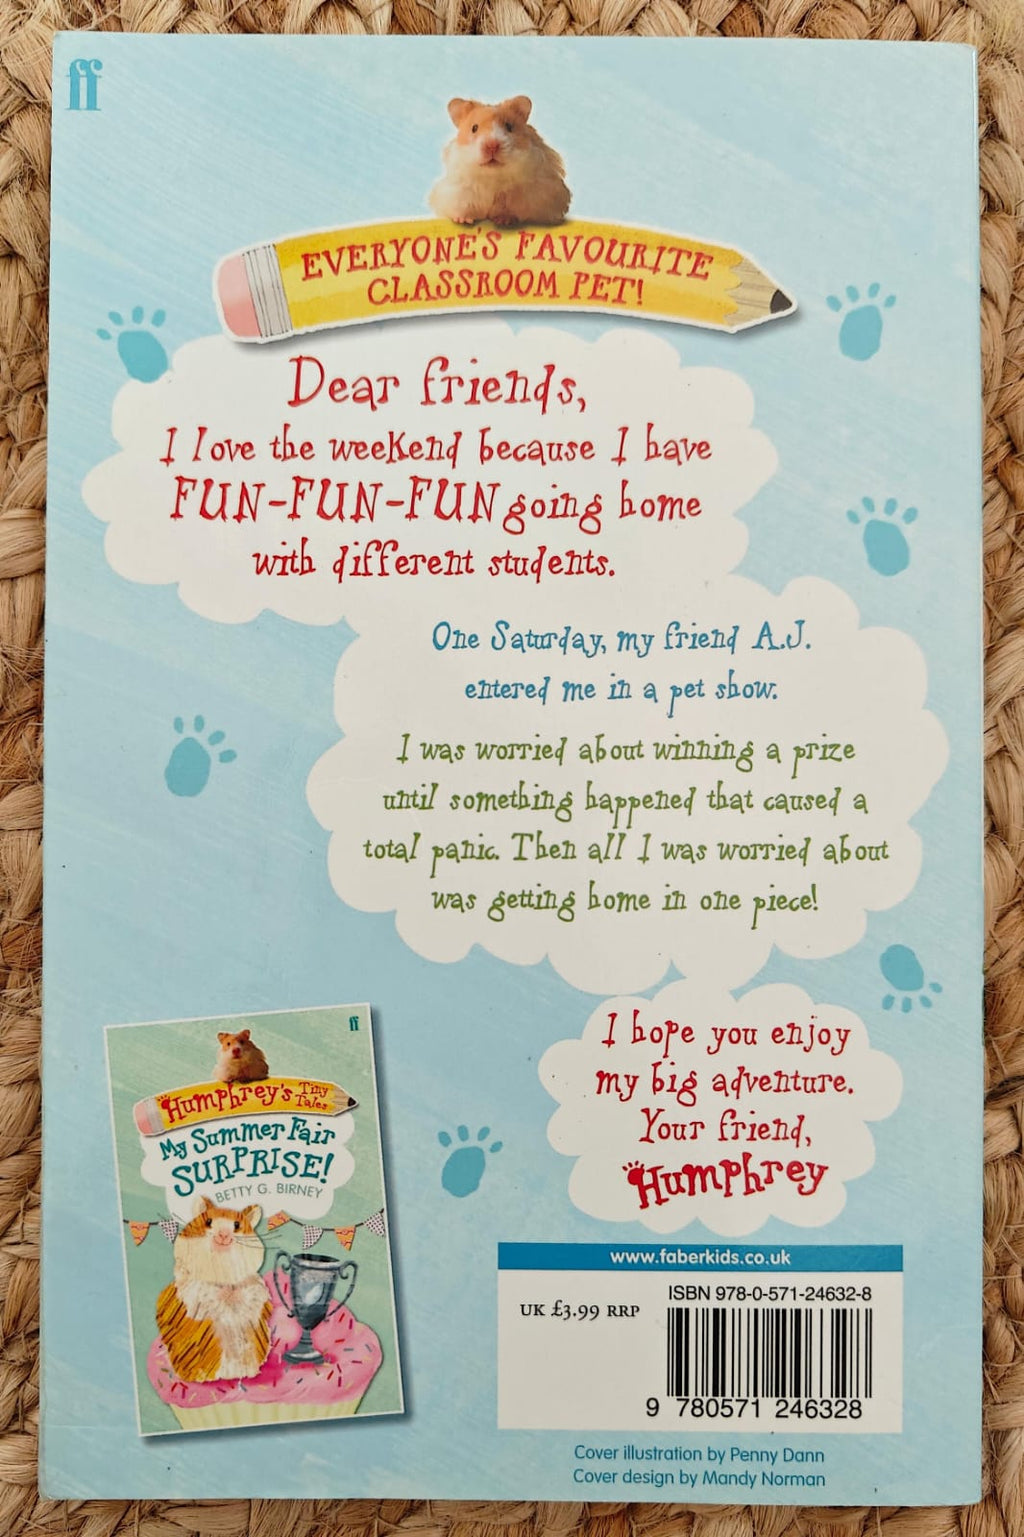 ff
EVERYONE'S FAVOURITE
CLASSROOM PET!
Dear friends,
I love the weekend because I have
FUN-FUN-FUN going home
with different students.
One Saturday, my friend A.J.
entered me in a pet show.
I was worried about winning a prize
until something happened that caused a
total panic. Then all I was worried about
was getting home in one piece!
I hope you enjoy
my big adventure.
Your friend,
Humphrey
ff
Humphrey's Tiny Tales
My Summer Fair
SURPRISE!
BETTY G. BIRNEY
www.faberkids.co.uk
UK £3.99 RRP
ISBN 978-0-571-24632-8
9 780571 246328
Cover illustration by Penny Dann
Cover design by Mandy Norman